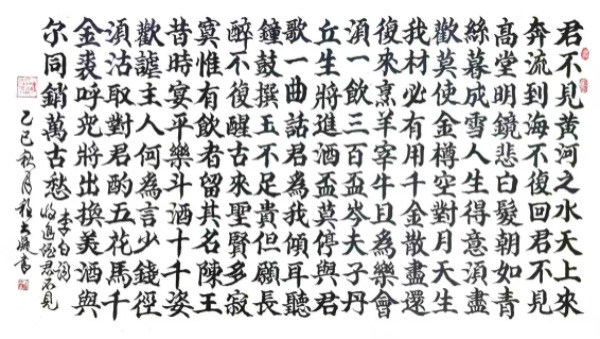 君不見黃河之水天上來
奔流到海不復回君不見
高堂明鏡悲白髮朝如青
絲暮成雪人生得意須盡
歡莫使金樽空對月天生
我材必有用千金散盡還
復來烹羊宰牛且為樂會
須一飲三百盃岑夫子丹
丘生將進酒盃莫停與君
歌一曲話君為我傾耳聽
鐘鼓撰玉不足貴但願長
醉不復醒古來聖賢多寂
寞惟有飲者留其名陳王
昔時宴平樂斗酒十千姿
歡謔主人何為言少錢徑
須沽取對君酌五花馬千
金裘呼兒將出換美酒與
尓同銷萬古愁
李白詞
將進酒君不見
乙巳秋月 書